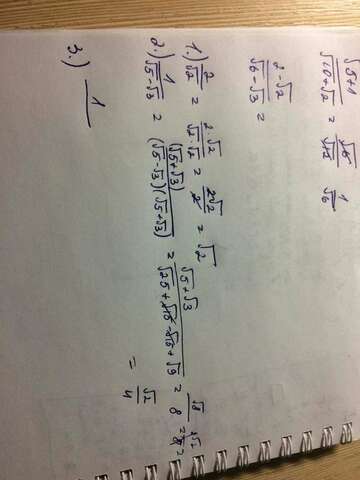 (√5+1)/(√10+√2) = √6/√12 1/√6
(2-√2)/(√6-√3) =
1.) 2/√2 = (2·√2)/(√2·√2) = 2√2/2 = √2
2.) 1/(√5-√3) = (√5+√3)/((√5-√3)(√5+√3)) = (√5+√3)/(√25+√15-√15+√9) = √8/8
= √2/4
3.) 1